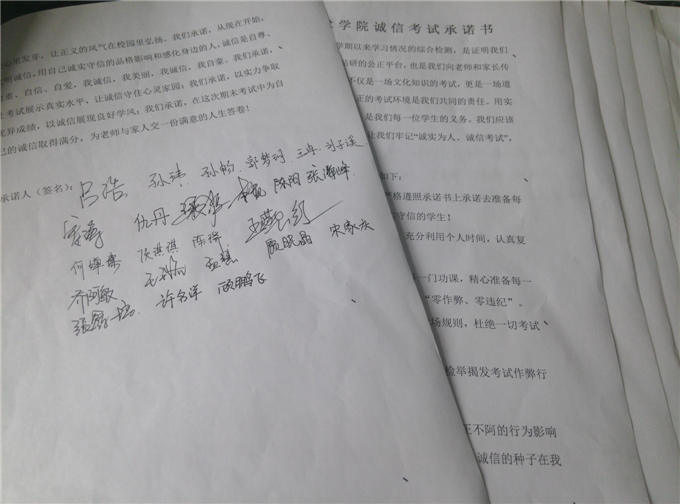 心里发芽，让正义的风气在校园里弘扬。我们承诺，从现在开始，
明诚信，用自己诚实守信的品格影响和感化身边的人，诚信是自尊、
自重、自信、自爱，我诚信，我美丽，我诚信，我自豪。我们承诺，
考试展示真实水平，让诚信守住心灵家园；我们承诺，以实力争取
优异成绩，以诚信展现良好学风；我们承诺，在这次期末考试中为自
己的诚信取得满分，为老师与家人交一份满意的人生答卷！
承诺人（签名）：吕浩 孙玮 孙畅
仇丹 陈阳
陈祥 宋家庆
乔阿敏 顾晓晶
许名洋 顾鹏飞
学院诚信考试承诺书
学期以来学习情况的综合检测，是证明我们
的公正平台，也是我们向老师和家长传
不仅是一场文化知识的考试，更是一场道
正的考试环境是我们共同的责任。用实
是我们每一位学生的义务。我们应该
让我们牢记“诚实为人、诚信考试”，
如下：
格遵照承诺书上承诺去准备每
守信的学生！
充分利用个人时间，认真复
一门功课，精心准备每一
“零作弊、零违纪”。
场规则，杜绝一切考试
检举揭发考试作弊行
正不阿的行为影响
诚信的种子在我